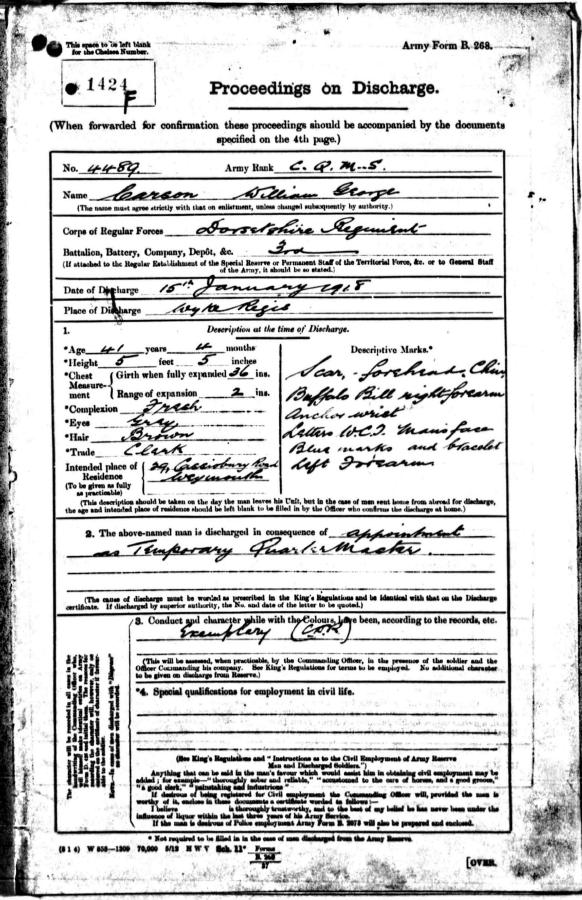 This space to be left blank
for the Chelsea Number.
Army Form B. 268.
1424
F
Proceedings on Discharge.
(When forwarded for confirmation these proceedings should be accompanied by the documents
specified on the 4th page.)
No. 4489. Army Rank C. Q. M. S.
Name Carson William George
(The name must agree strictly with that on enlistment, unless changed subsequently by authority.)
Corps of Regular Forces Dorsetshire Regiment
Battalion, Battery, Company, Depôt, &c. 3rd
(If attached to the Regular Establishment of the Special Reserve or Permanent Staff of the Territorial Force, &c. or to General Staff
of the Army, it should be so stated.)
Date of Discharge 15th January 1918
Place of Discharge Wyke Regis
1. Description at the time of Discharge.
*Age 41 years 4 months
*Height 5 feet 5 inches
*Chest Measurement Girth when fully expanded 36 ins.
Range of expansion 2 ins.
*Complexion Fresh
*Eyes Grey
*Hair Brown
*Trade Clerk
Intended place of Residence 29, Road
Weymouth
(To be given as fully
as practicable)
Descriptive Marks.*
Scar, - forehead, Chin,
Buffalo Bill right forearm
Anchor wrist
Letters Mans face
Blue marks and bracelet
left Forearm
(This description should be taken on the day the man leaves his Unit, but in the case of men sent home from abroad for discharge,
the age and intended place of residence should be left blank to be filled in by the Officer who confirms the discharge at home.)
2. The above-named man is discharged in consequence of appointment
as Temporary Quarter Master.
(The cause of discharge must be worded as prescribed in the King's Regulations and be identical with that on the Discharge
certificate. If discharged by superior authority, the No. and date of the letter to be quoted.)
3. Conduct and character while with the Colours, have been, according to the records, etc.
Exemplary
(This will be assessed, when practicable, by the Commanding Officer, in the presence of the soldier and the
Officer Commanding his company. See King's Regulations for terms to be employed. No additional character
to be given on discharge from Reserve.)
*4. Special qualifications for employment in civil life.
(See King's Regulations and "Instructions as to the Civil Employment of Army Reserve
Men and Discharged Soldiers.")
Anything that can be said in the man's favour which would assist him in obtaining civil employment may be
added; for example—"thoroughly sober and reliable," "accustomed to the care of horses, and a good groom,"
"a good clerk," "painstaking and industrious"
If desirous of being registered for Civil employment the Commanding Officer will, provided the man is
worthy of it, enclose in these documents a certificate worded as follows:—
I believe is thoroughly trustworthy, and to the best of my belief he has never been under the
influence of liquor within the last three years of his Army Service.
If the man is desirous of Police employment Army Form B. 2078 will also be prepared and enclosed.
* Not required to be filled in in the case of men discharged from the Army Reserve.
(8 1 4) W 858—1309 70,000 5/12 H W V Sch. 11* Forms
B. 268
37
[OVER.